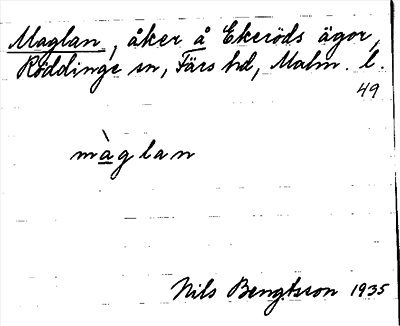 Maglan, åker å Ekeröds ägor,
Röddinge sn, Färs hd, Malm. l.
49
màglan
Nils Bengtsson 1935